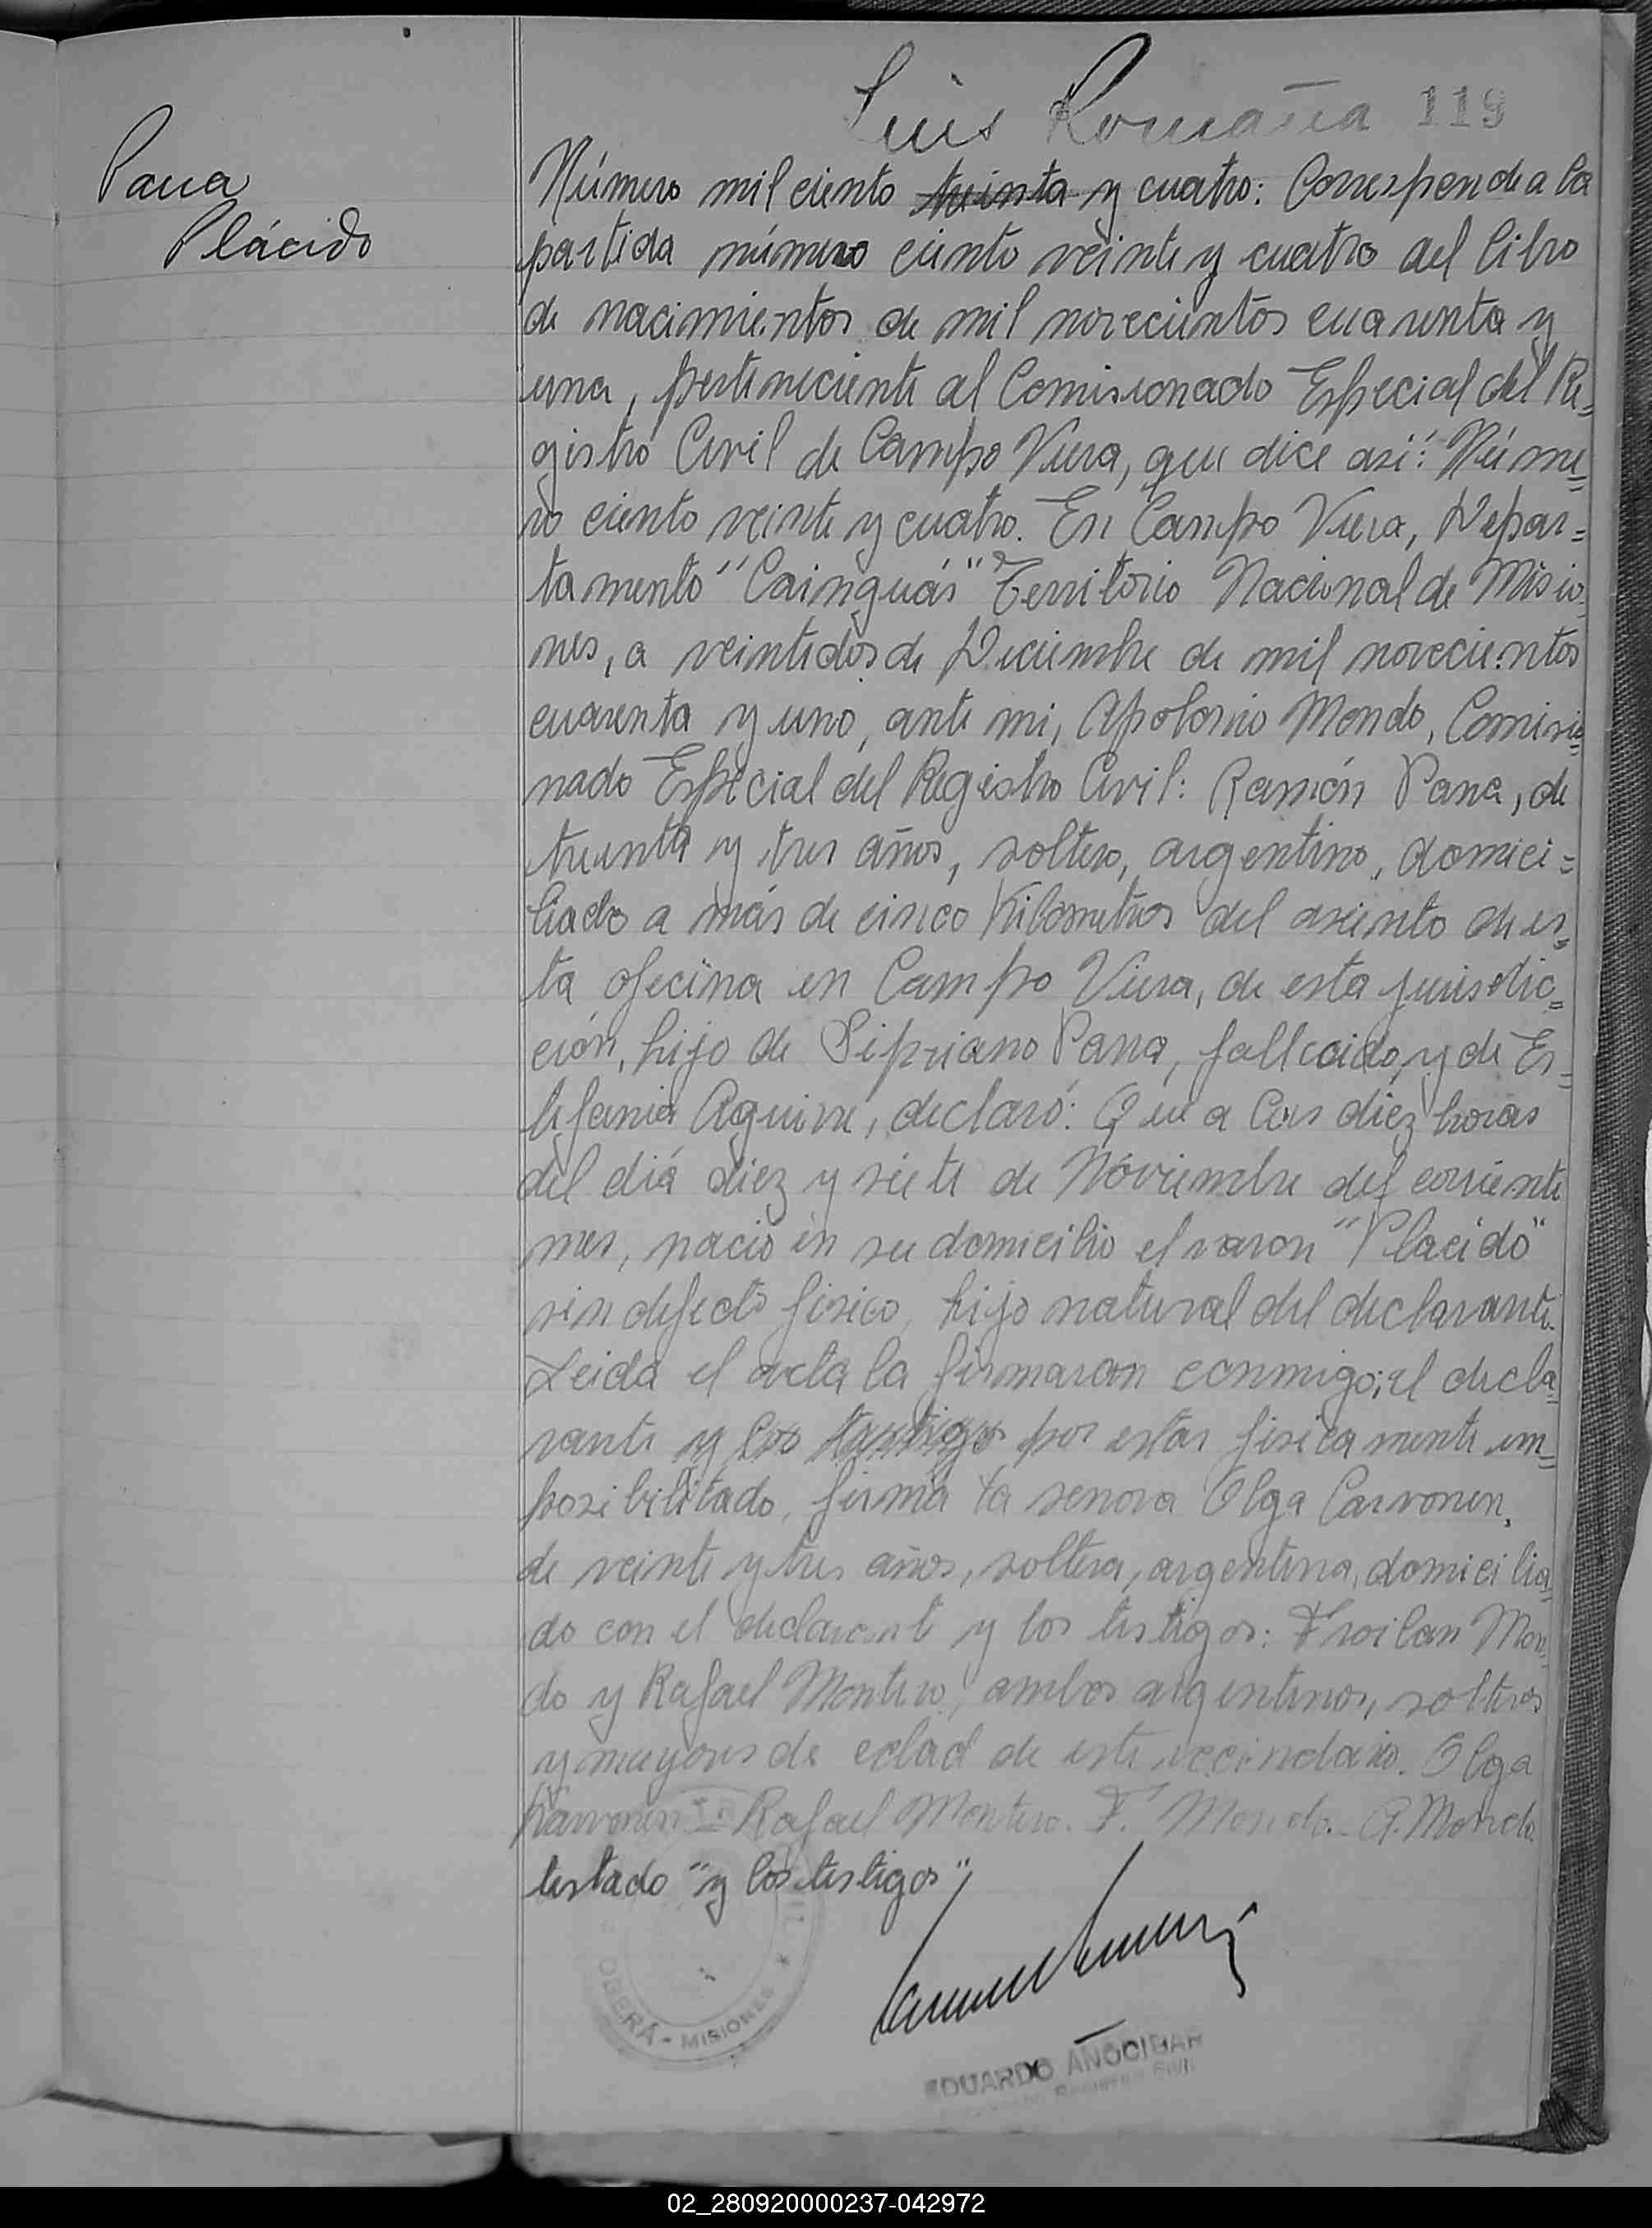 Luis Romaña 119
Pana
Plácido
Número mil ciento treinta y cuatro: Corresponde a la
partida número ciento veinte y cuatro del libro
de nacimientos de mil novecientos cuarenta y
una, perteneciente al Comisionado Especial del Re=
gistro Civil de Campo Viera, que dice así: Núme=
ro ciento veinte y cuatro. En Campo Viera, Depar=
tamento "Cainguás" Territorio Nacional de Misio=
nes, a veintidos de Diciembre de mil novecientos
cuarenta y uno, ante mi, Apolonio Mondo, Comisio=
nado Especial del Registro Civil: Ramón Pana, de
treinta y tres años, soltero, argentino, domici=
liado a más de cinco Kilometros del asiento de es=
ta ofecina en Campo Viera, de esta jurisdic=
ción, hijo de Sipriano Pana, fallecido, y de Es=
tefania Aguirre, declaró: Que a las diez horas
del diá diez y siete de Noviembre del corriente
mes, nació en su domicilio el varon "Placido"
sin defecto fisico, hijo natural del declarante.
Leida el acta la firmaron conmigo; el decla=
rante y los testigos por estar fisicamente im=
posibilitado, firma la senora Olga Carvonen,
de veinte y tres años, soltera, argentina, domicilia=
do con el declarant y los testigos: Froilan Mon=
do y Rafael Montero, ambos argentinos, solteros
y mayores de edad de este vecindario. Olga
Karvonen - Rafael Montero. F. Mondo. - A. Mondo.
testado "y los testigos"
OBERÁ - MISIONES *
EDUARDO AÑOCIBAR
Registro Civil
02_280920000237-042972